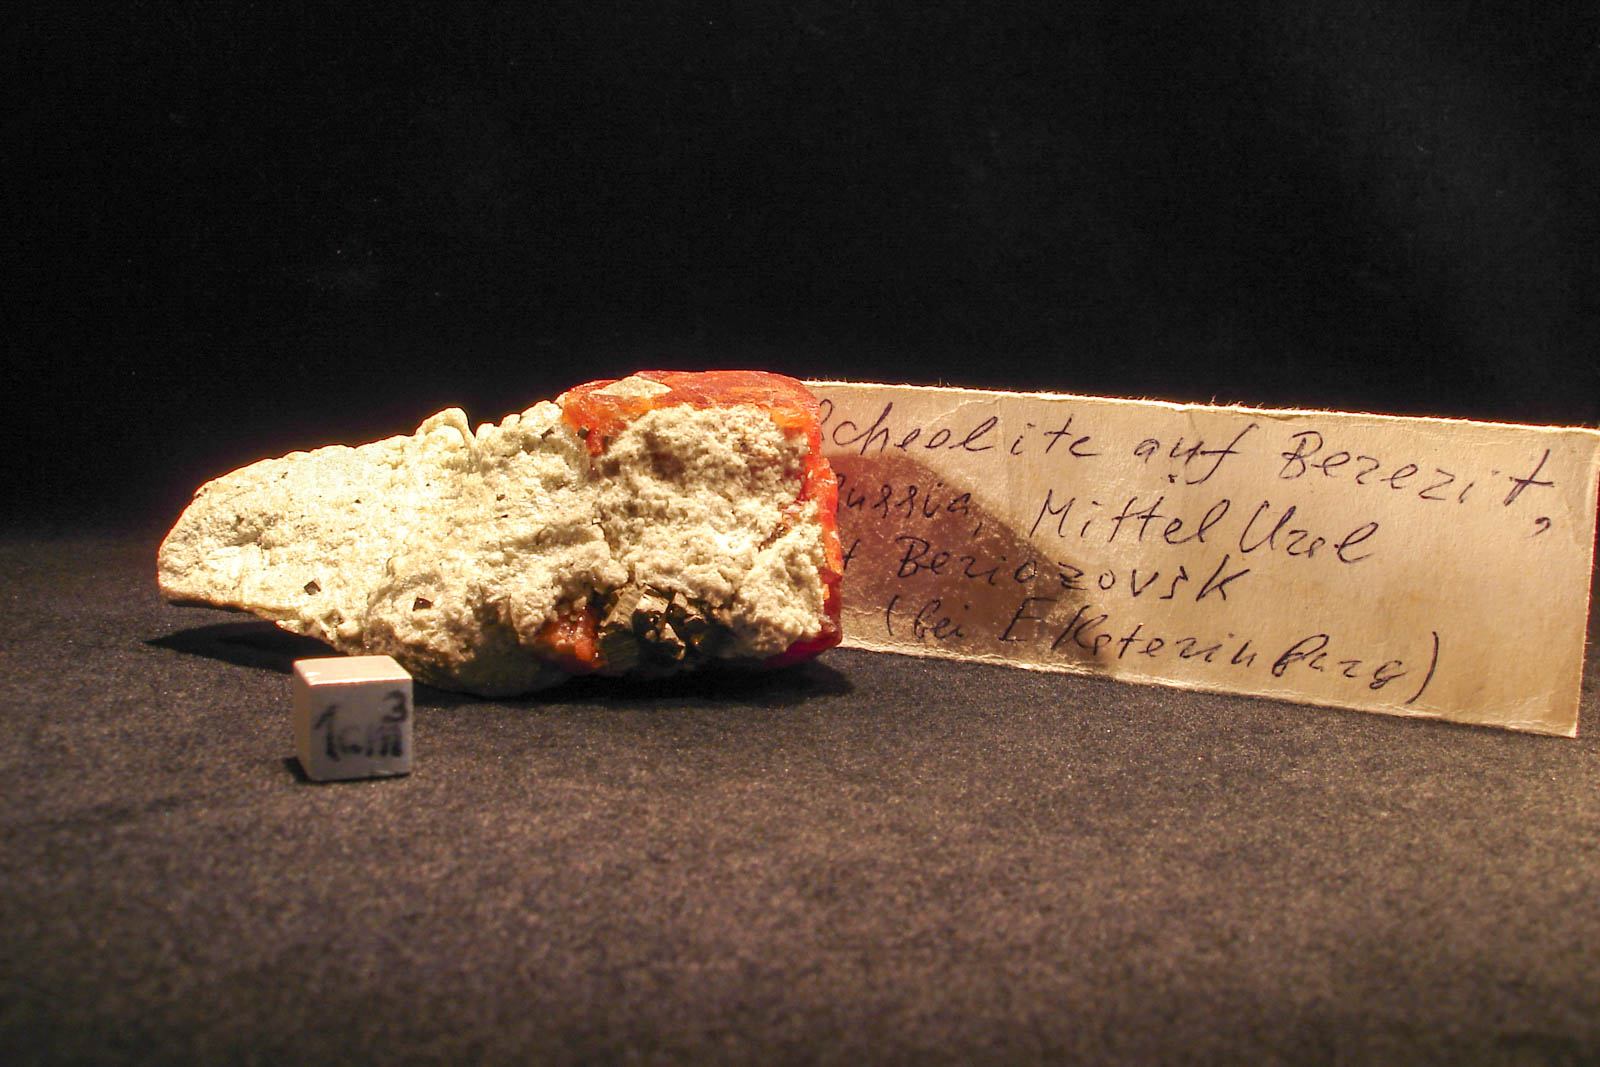 Scheelite auf Berezit,
Russia, Mittel Ural
Beriozovsk
(bei Ekaterinburg)
1cm³